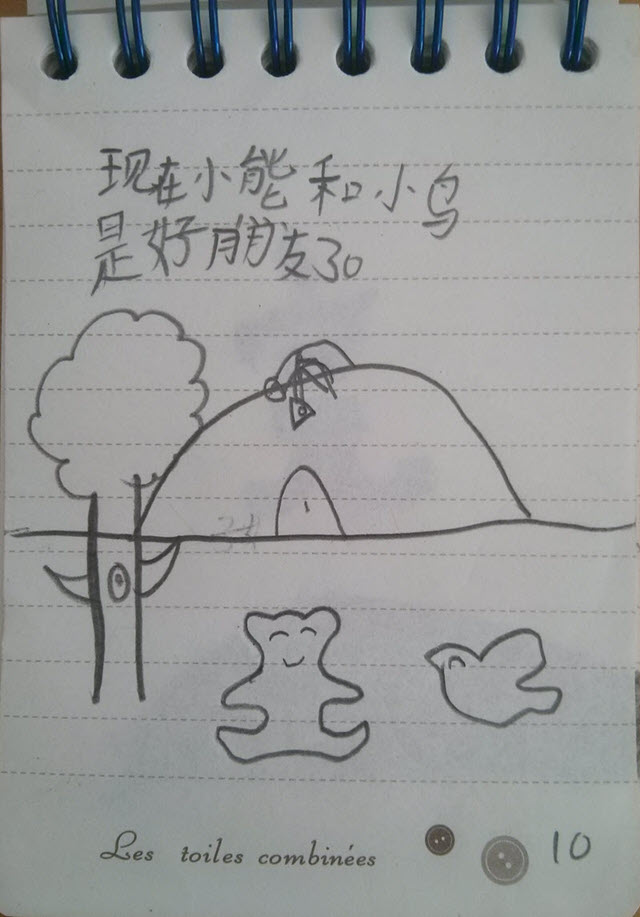 现在小能和小鸟
是好朋友了。
Les toiles combinées
10